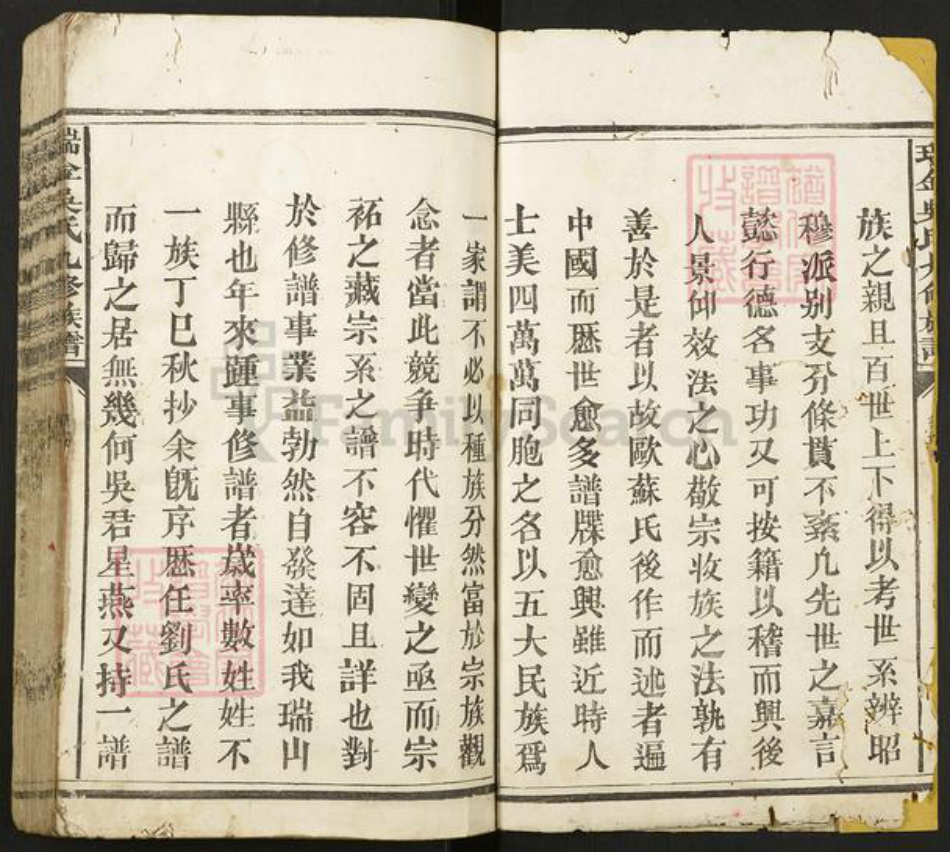 族之親且百世上下得以考世系辨昭
穆派别支分條貫不紊凢先世之嘉言
懿行德名事功又可按籍以稽而興後
人景仰效法之心敬宗收族之法孰有
善於是者以故歐蘇氏後作而述者遍
中國而歷世愈多譜牒愈興雖近時人
士美四萬萬同胞之名以五大民族爲
一家謂不必以種族分然富於宗族觀
念者當此競争時代懼世變之亟而宗
祏之藏宗系之譜不容不固且詳也對
於修譜事業益勃然自發達如我瑞山
縣也年來踵事修譜者歲率數姓姓不
一族丁巳秋抄余既序歷任劉氏之譜
而歸之居無幾何吳君星燕又持一譜
瑞金吳氏九修族譜
FamilySearch